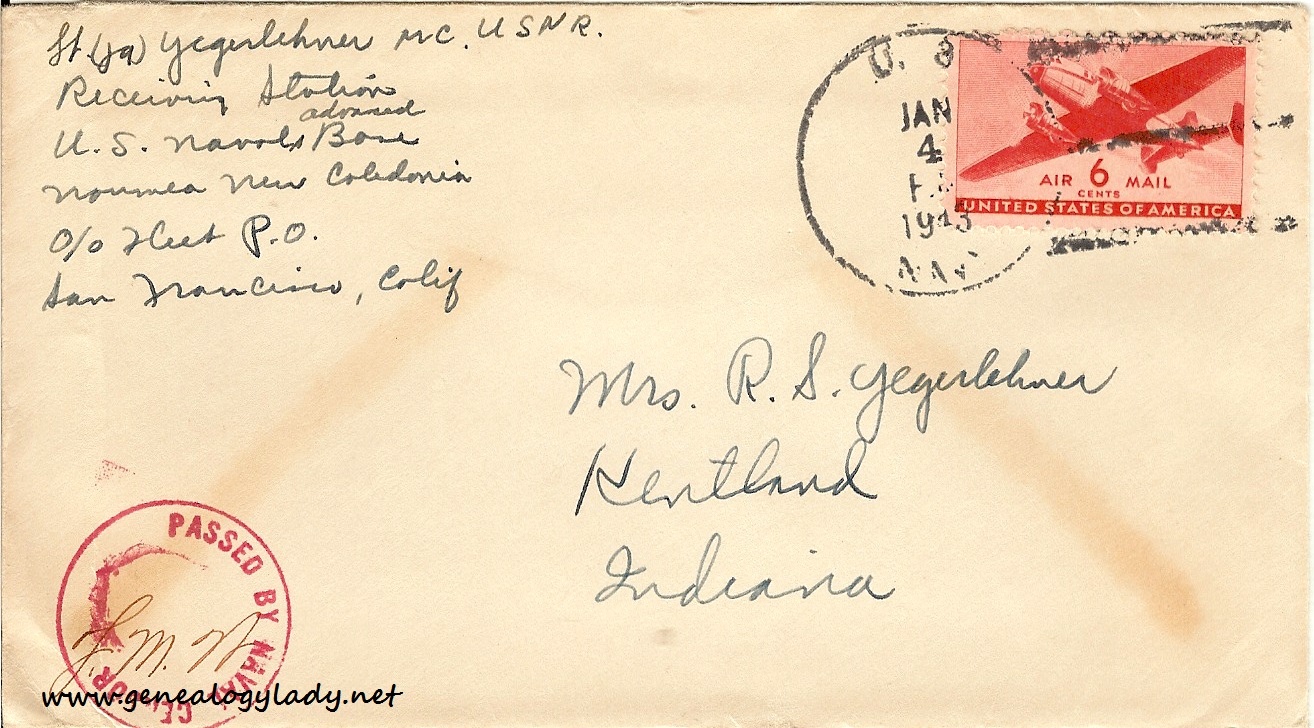 Lt. (jg) Yegerlehner MC. USNR.
Receiving Station
advanced
U.S. Naval Base
Noumea New Caledonia
c/o Fleet P.O.
San Francisco, Calif
U. S.
JAN
4
1943
NAVY
AIR 6 MAIL
CENTS
UNITED STATES OF AMERICA
Mrs. R. S. Yegerlehner
Kentland
Indiana
PASSED BY NAVAL CENSOR
www.genealogylady.net